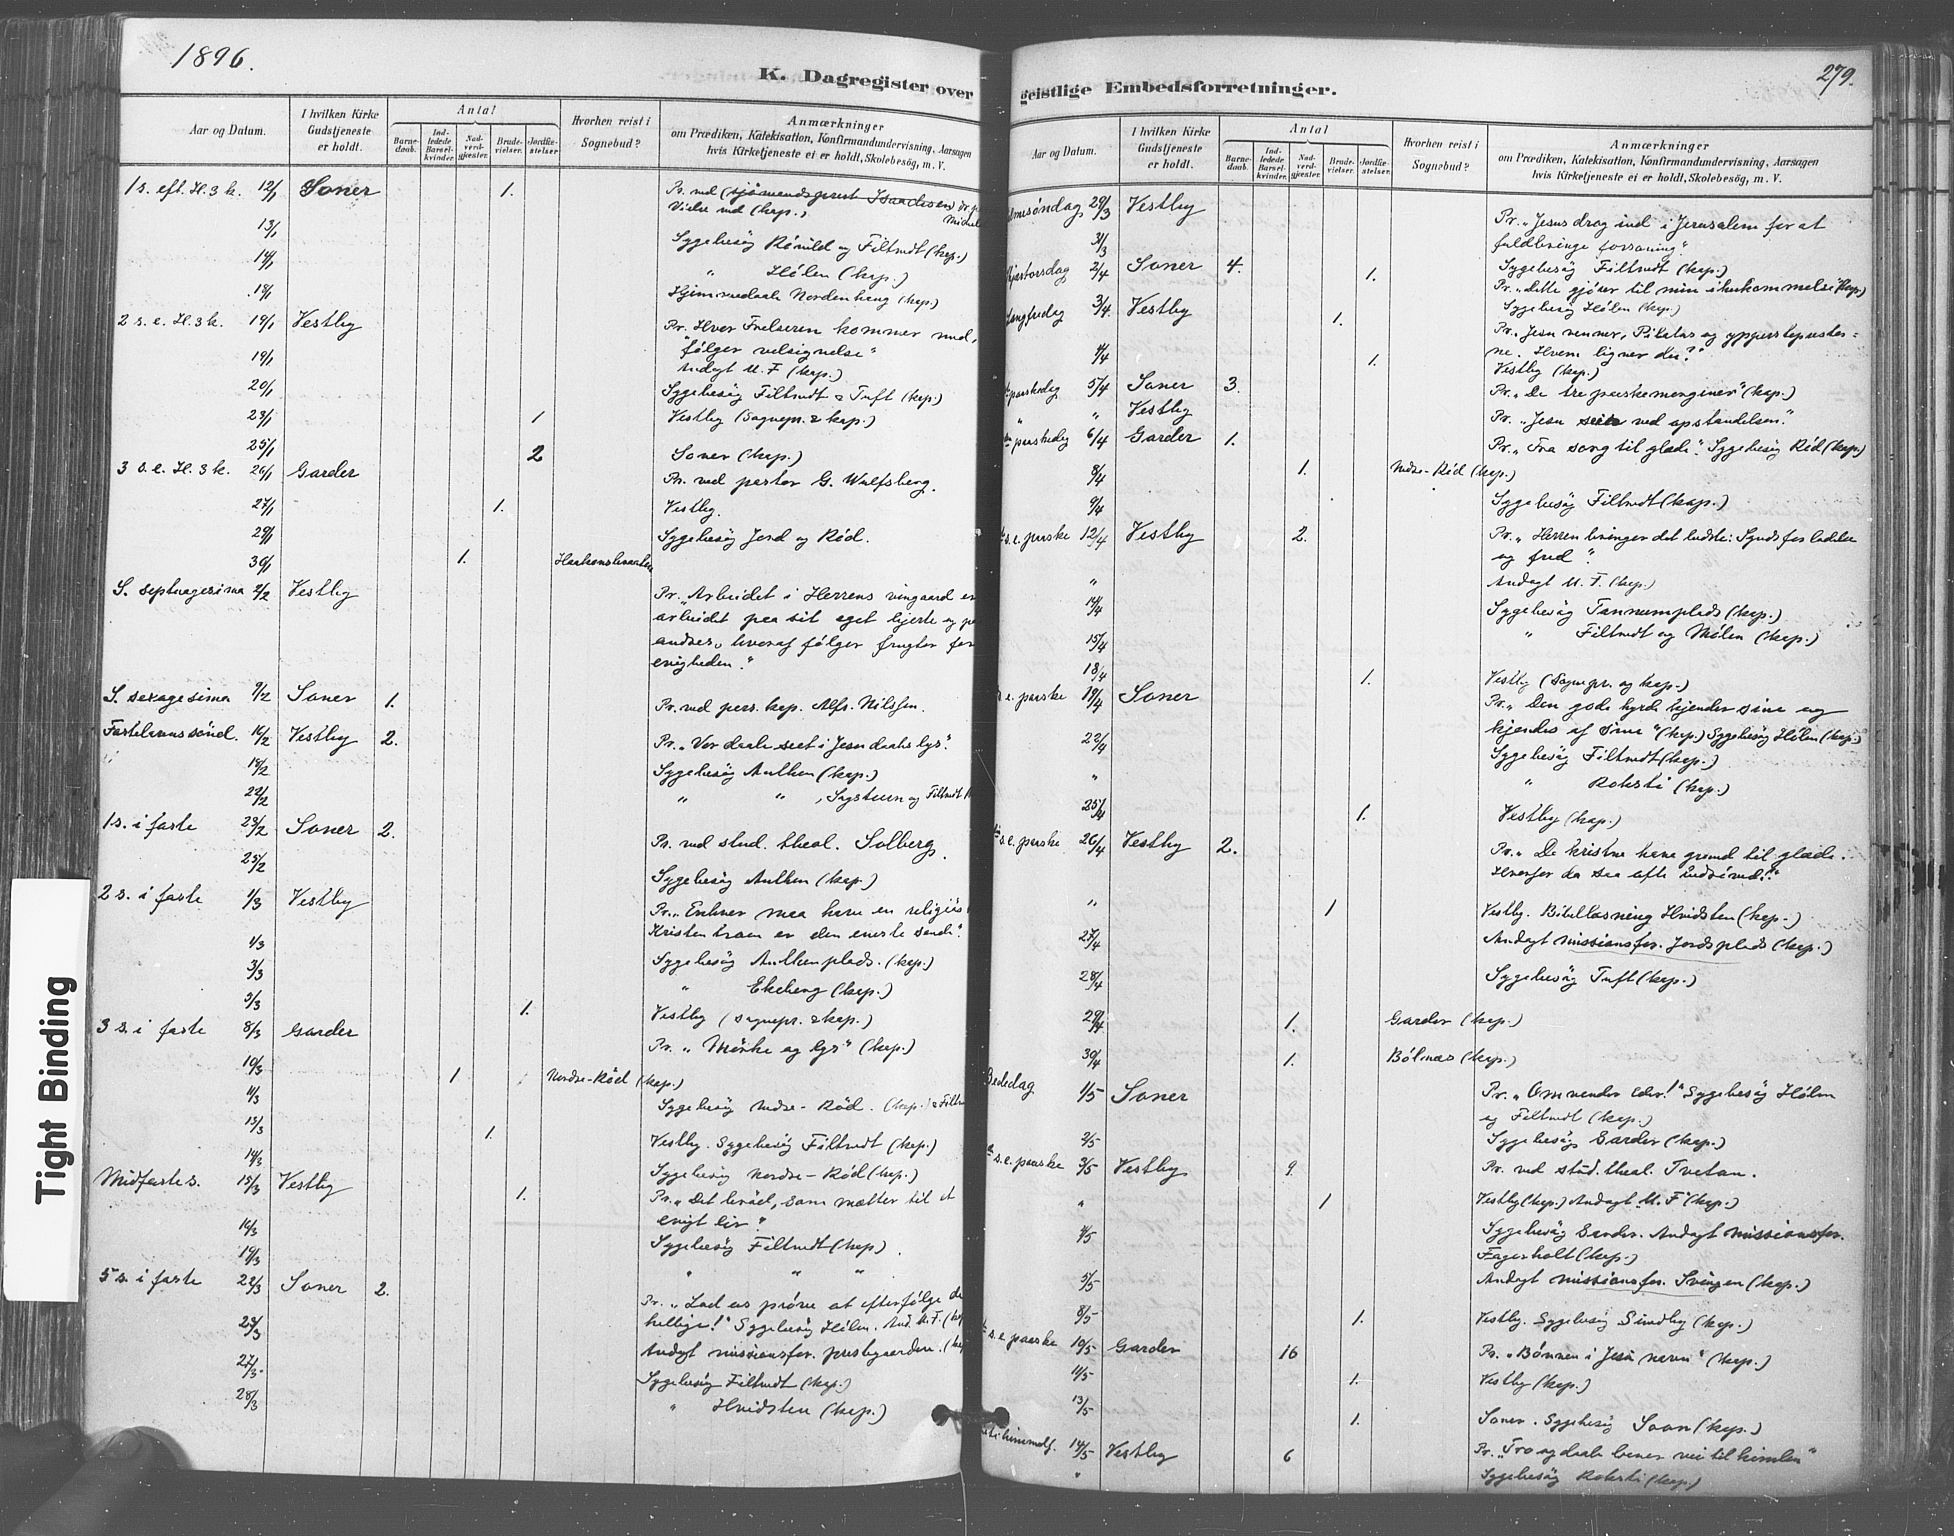 1896.
K. Dagregister over
Aar og Datum.
I hvilken Kirke Gudstjeneste er holdt.
Antal
Barnedaab.
Indledede Barselkvinder.
Nadverdgjester.
Brudevielser.
Jordfæstelser
Hvorhen reist i Sognebud?
Anmærkninger
om Prædiken, Katekisation, Konfirmandundervisning, Aarsagen
hvis Kirketjeneste ei er holdt, Skolebesög, m. V.
1 s. eft. H. 3 k. 12/1 Soner 1. Pr. ved (sjømandsprest Isaachsen)
Vielse ved (kap.)
13/1 Sygebesög Rönild og Filtvedt (kap.)
14/1 " Hölen (kap.)
18/1 Hjemmedaab Nordenhaug (kap.)
2 s. e. H. 3 k. 19/1 Vestby Pr. "Hvor Frelseren kommer med,
følger velsignelse"
19/1 Andagt U. F. (kap.)
20/1 Sygebesög Filtvedt & Tuft (kap.)
23/1 1 Vestby (Sognepr. & kap.)
25/1 2 Soner (kap.)
3 s. e. H. 3 k. 26/1 Garder Pr. ved pastor G. Wulfsberg.
27/1 1. Vestby.
29/1 Sygebesög Jord og Röd.
30/1 1.
S. septuagesima 2/2 Vestby Pr. "Arbeidet i Herrens vingaard er
arbeidet paa sit eget hjerte og paa
andres, hvoraf følger frugter for
evigheden."
S. sexagesima 9/2 Soner 1. Pr. ved pers. kap. Alfr. Nilssen.
Fastelavnssönd. 16/2 Vestby 2. Pr. "Vor daab seet i Jesu daabs lys."
18/2 Sygebesög Aulken (kap.)
22/2 " " , og Filtvedt
1 s. i faste 23/2 Soner 2. Pr. ved stud. theol. Solberg.
25/2 Sygebesög Aulken (kap.)
2 s. i faste 1/3 Vestby Pr. "Enhver maa have en religiös
Kristentroen er den eneste sande."
1/3 Sygebesög Aulkenplads. (kap.)
3/3 " Ekeberg (kap.)
5/3 1. Vestby (sognepr. & kap.)
3 s. i faste 8/3 Garder Pr. "Mörke og lys" (kap.)
10/3 1 Nordre-Röd (kap.)
11/3 Sygebesög Nedre-Röd. (kap.)
13/3 1. Vestby. Sygebesög Filtvedt (kap.)
14/3 Sygebesög Nordre-Röd (kap.)
Midfastes. 15/3 Vestby 1. Pr. "Det bröd, som mætter til et
evigt liv."
16/3 Sygebesög Filtvedt (kap.)
19/3 " " "
5 s. i faste 22/3 Soner 2. Pr. "Lad os prøve at efterfølge de
hellige!" Sygebesög Hölen. And. U. F.
23/3 Andagt missionsfor. prestegaarden.
27/3 Sygebesög Filtvedt (kap.)
28/3 " Hvidsten (kap.)
279.
geistlige Embedsforretninger.
Aar og Datum.
I hvilken Kirke Gudstjeneste er holdt.
Antal
Barnedaab.
Indledede Barselkvinder.
Nadverdgjester.
Brudevielser.
Jordfæstelser.
Hvorhen reist i Sognebud?
Anmærkninger
om Prædiken, Katekisation, Konfirmandundervisning, Aarsagen
hvis Kirketjeneste ei er holdt, Skolebesög, m. V.
29/3 Vestby Pr. "Jesus drog ind i Jerusalem for at
fuldbringe forsoning"
31/3 Sygebesög Filtvedt (kap.)
2/4 Soner 4. 1. Pr. "Dette gjører til min ihukommelse" (kap.)
Sygebesög Hölen (kap.)
Langfredag 3/4. Vestby 1. Pr. "Jesu venner, Pilatus og yppersteprester-
ne. Hvem ligner du?"
4/4 1. Vestby (kap.)
paaskedag 5/4 Soner 3. Pr. "De tre paaskemorgener" (kap.)
" Vestby Pr. "Jesu ved opstandelsen."
paaskedag 6/4 Garder 1. Pr. "Fra sorg til glæde". Sygebesög Röd (kap.)
8/4 1. Nedre-Röd (kap.)
9/4 Sygebesög Filtvedt (kap.)
s. e. paaske 12/4 Vestby 2. Pr. "Herren bringer det bedste: Syndsforladelse
og fred".
" Andagt U. F. (kap.)
14/4 Sygebesög Tannumplads (kap.)
15/4 " Filtvedt og Mölen (kap.)
18/4 1. Vestby (Sognepr. og kap.)
s. e. paaske 19/4 Soner Pr. "Den gode hyrde kjender sine og
kjendes af sine" (kap.) Sygebesög Hölen (kap.)
22/4 Sygebesög Filtvedt (kap.)
" " Roksti (kap.)
25/4 1. Vestby (kap.)
s. e. paaske 26/4 Vestby 2. Pr. "De kristne have grund til glæde.
Hvorfor da saa ofte
" 1 Vestby. Bibellæsning Hvidsten (kap.)
27/4 Andagt missionsfor. Jordsplads (kap.)
28/4 Sygebesög Tuft (kap.)
29/4 1. Garder (kap.)
30/4 1. Bölnæs (kap.)
Bededag 1/5 Soner Pr. "Omvender eder!" Sygebesög Hölen
og Filtvedt (kap.)
2/5 Sygebesög Garder (kap.)
s. e. paaske 3/5 Vestby 9. Pr. ved stud. theol. Tvetan.
" 1 Vestby (kap.) Andagt U. F. (kap.)
4/5 Sygebesög Garder. Andagt missionsfor.
Fagerholt (kap.)
5/5 Andagt missionsfor. Svingen (kap.)
8/5 1. Vestby. Sygebesög Sundby (kap.)
s. e. paaske 10/5 Garder 16 Pr. "Bönnen i Jesu navn" (kap.)
11/5 1. Vestby (kap.)
13/5 1. Soner. Sygebesög Soon (kap.)
14/5 Vestby 6 Pr. "Tro og daab bener vei til himlen"
" Sygebesög Roksti (kap.)
Tight Binding